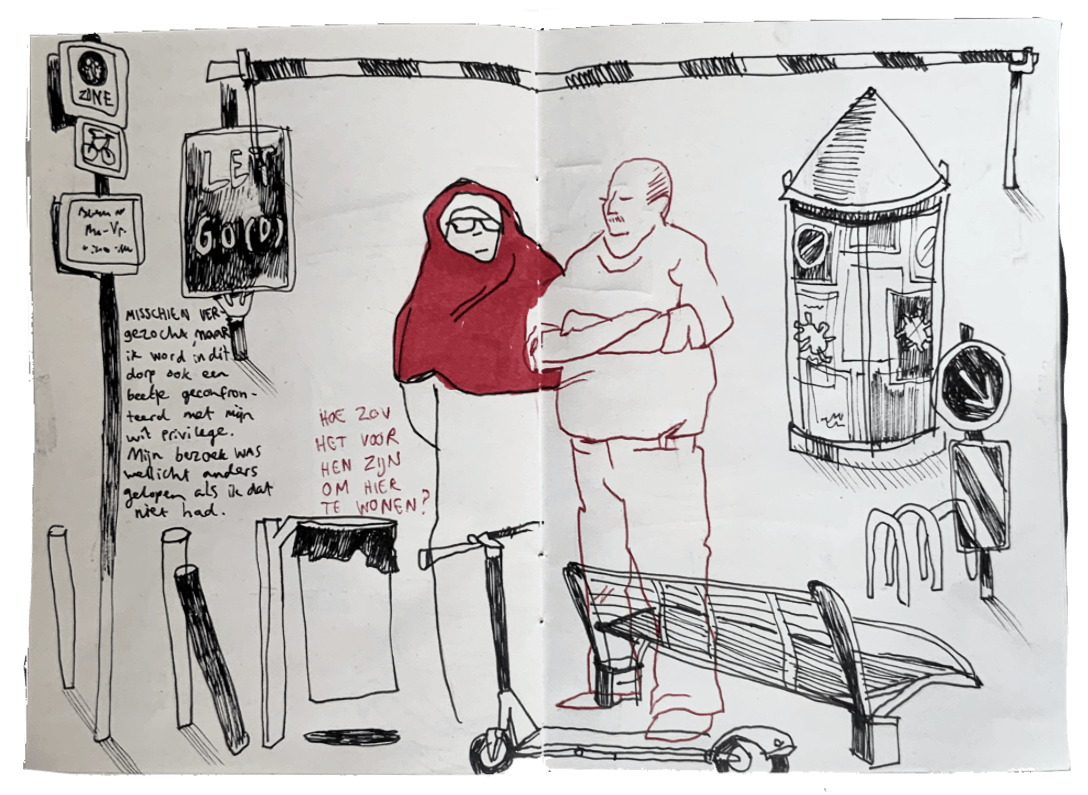 ZONE
Ma-Vr
LET
GO(D)
MISSCHIEN VER-
gezocht, maar
ik word in dit
dorp ook een
beetje geconfron-
teerd met mijn
wit privilege.
Mijn bezoek was
wellicht anders
gelopen als ik dat
niet had.
HOE ZOU
HET VOOR
HEN ZIJN
OM HIER
TE WONEN?